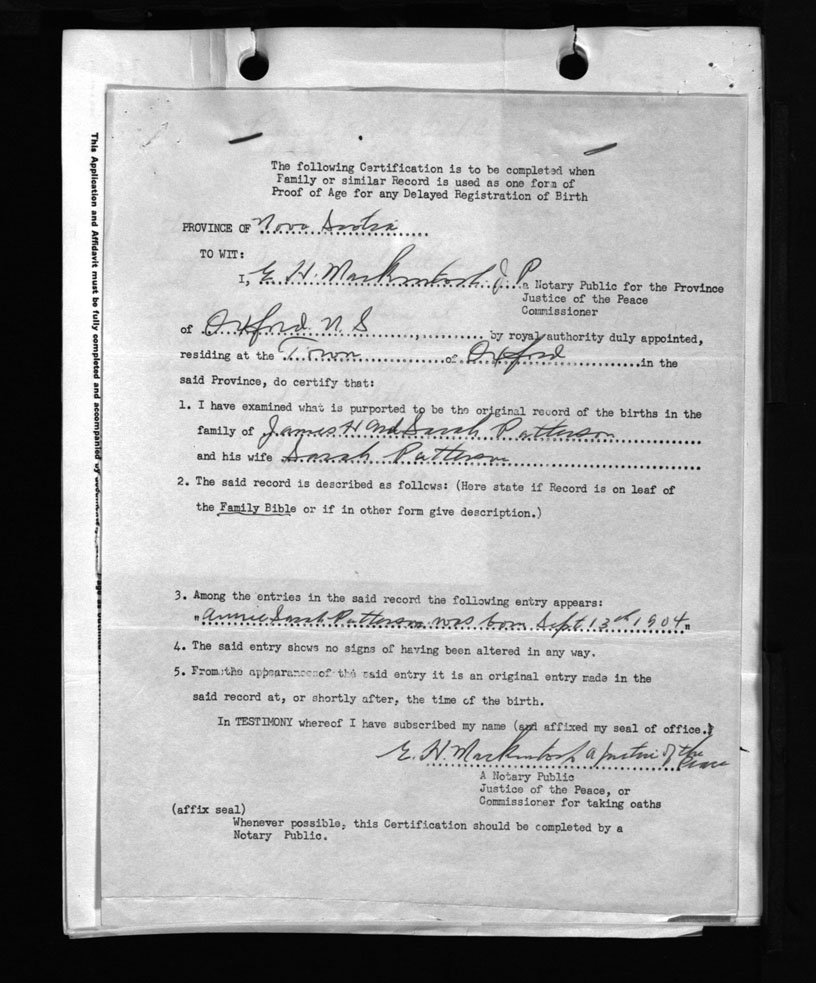 The following Certification is to be completed when
Family or similar Record is used as one form of
Proof of Age for any Delayed Registration of Birth
PROVINCE OF Nova Scotia
TO WIT:
I, E. H. Mackintosh J. P. a Notary Public for the Province
Justice of the Peace
Commissioner
of Oxford N S by royal authority duly appointed,
residing at the Town of Oxford in the
said Province, do certify that:
1. I have examined what is purported to be the original record of the births in the
family of James H and Sarah Patterson
and his wife Sarah Patterson
2. The said record is described as follows: (Here state if Record is on leaf of
the Family Bible or if in other form give description.)
3. Among the entries in the said record the following entry appears:
"Annie Sarah Patterson was born Sept 13th 1904"
4. The said entry shows no signs of having been altered in any way.
5. From the appearance of the said entry it is an original entry made in the
said record at, or shortly after, the time of the birth.
In TESTIMONY whereof I have subscribed my name (and affixed my seal of office.)
E. H. Mackintosh a Justice of the Peace
A Notary Public
Justice of the Peace, or
Commissioner for taking oaths
(affix seal)
Whenever possible, this Certification should be completed by a
Notary Public.
This Application and Affidavit must be fully completed and accompanied by